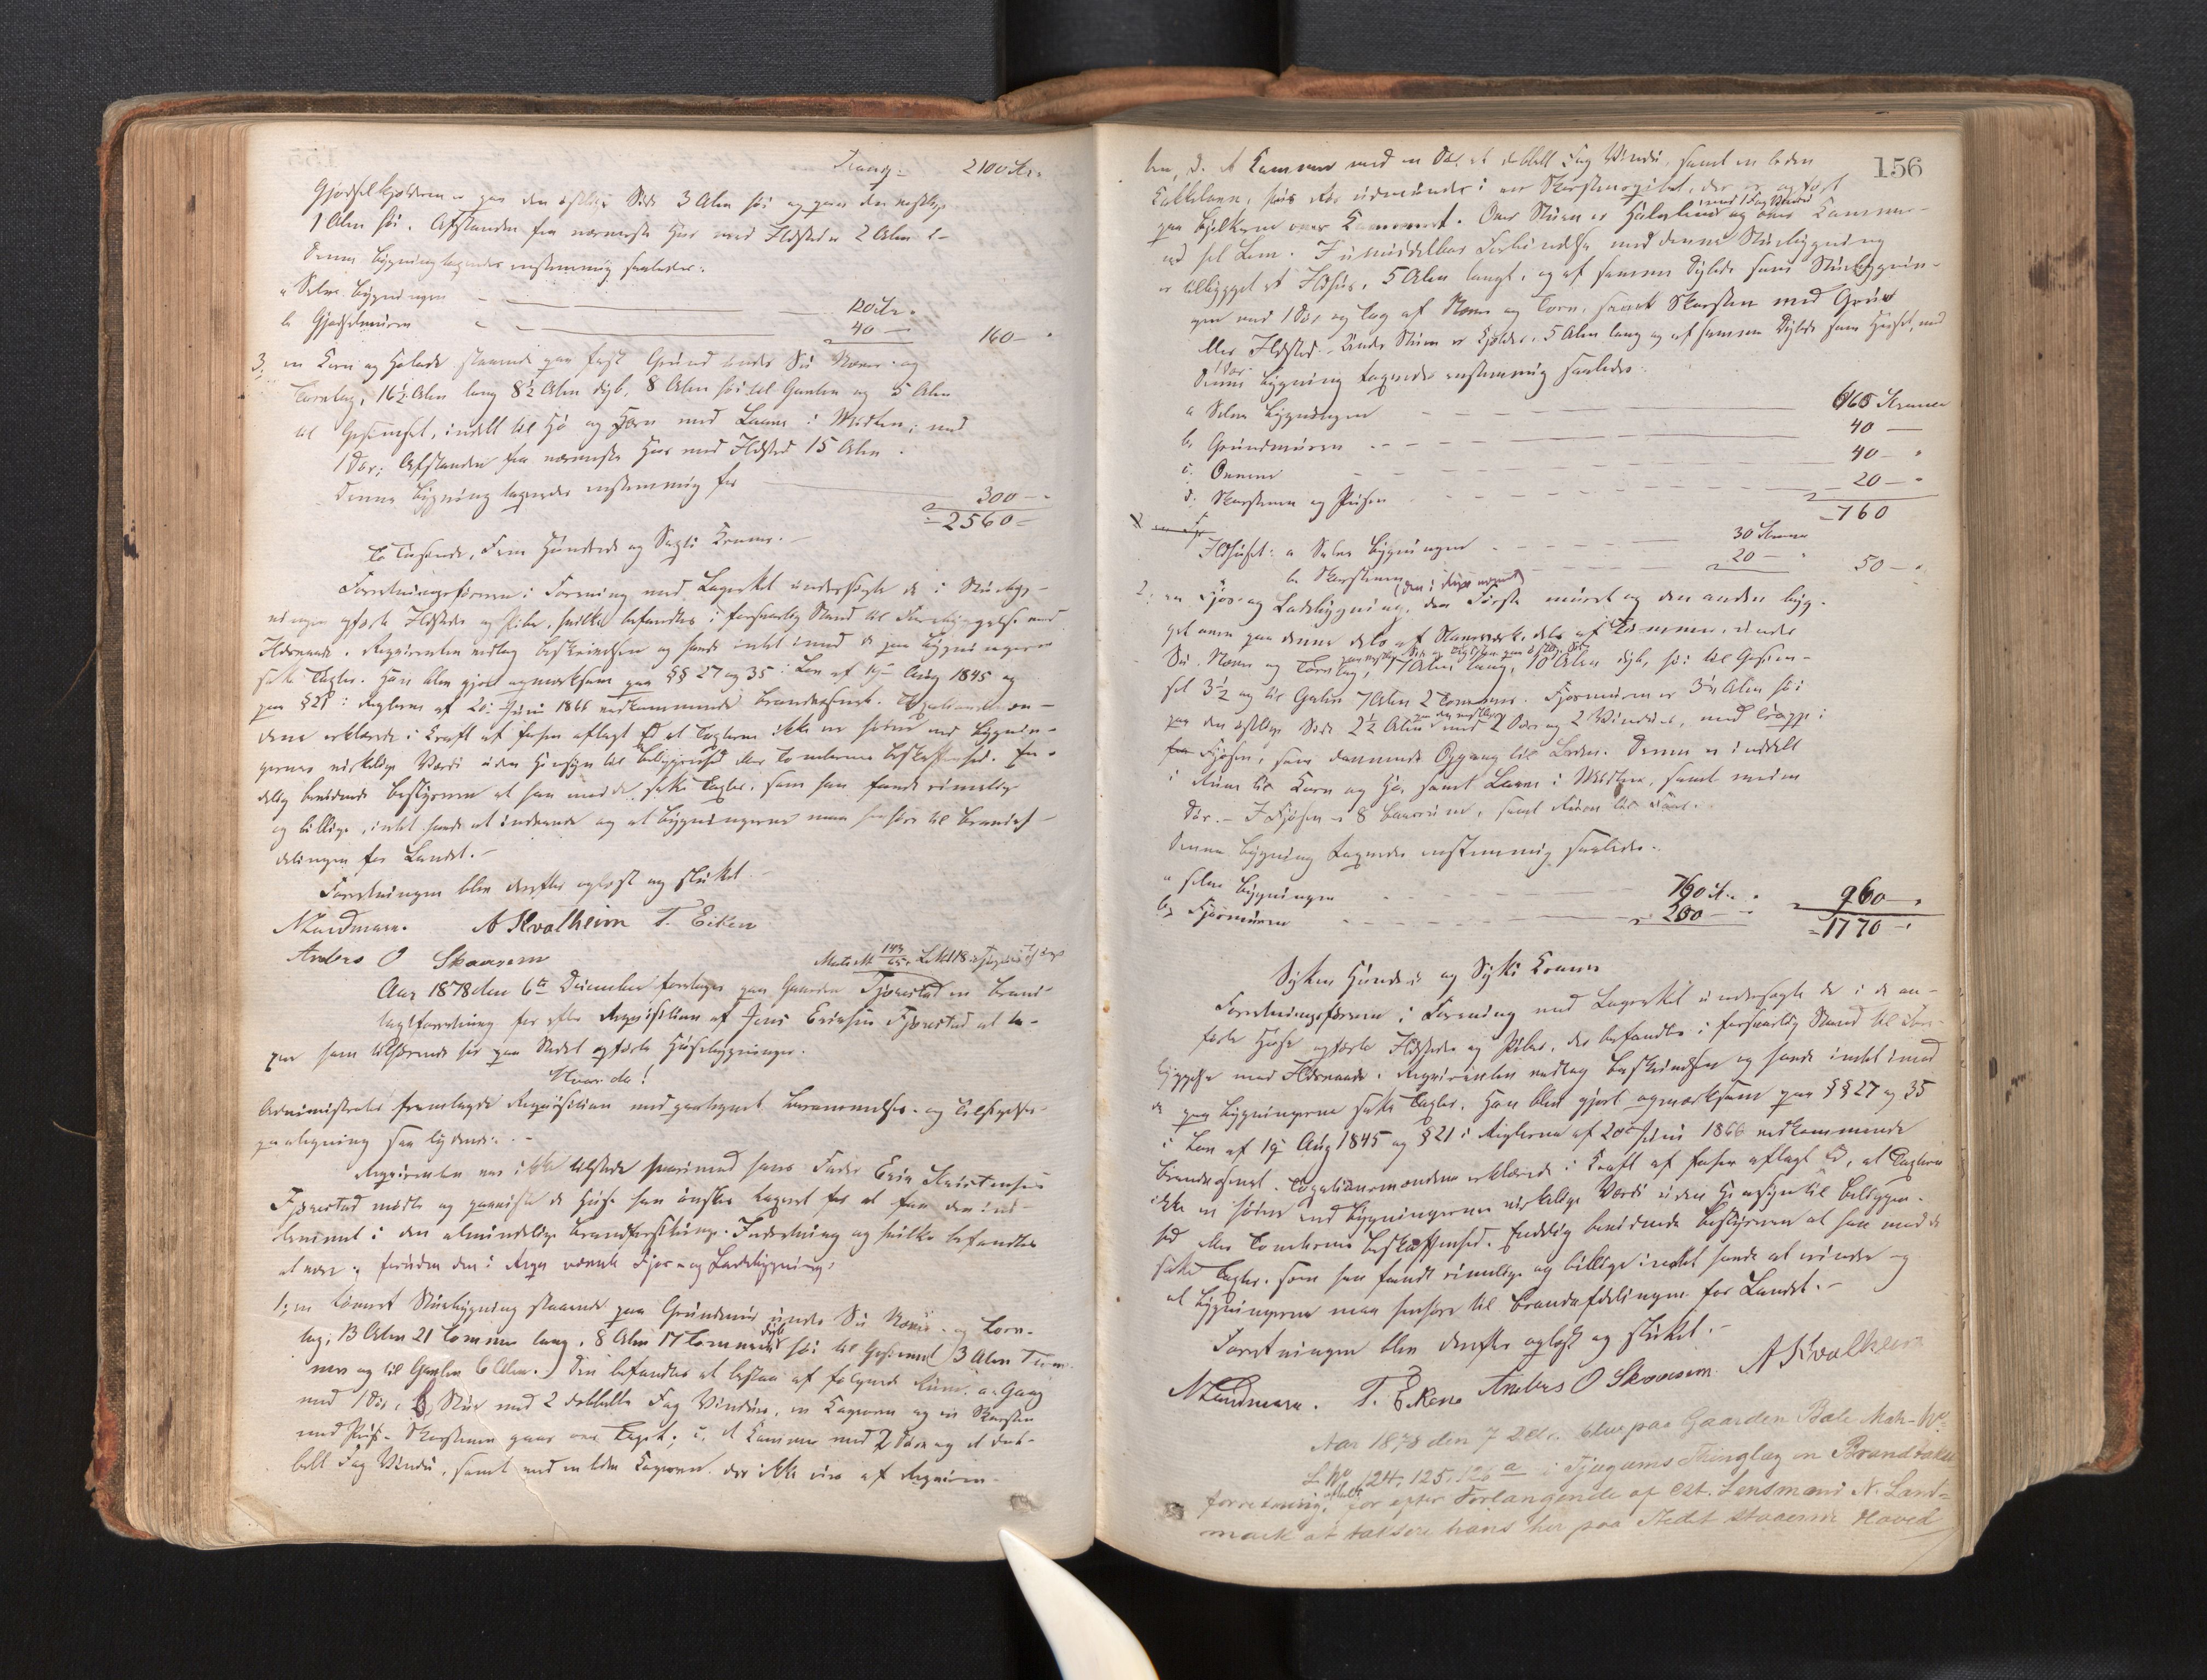 Transp: 2100 Kr.
Gjødselkjelderen er paa den østlige Side 3 Alen høi og paa den vestlige
1 Alen høi. Afstanden fra nærmeste Hus med Ildsted er 2 Alen.
Denne Bygning taxeredes enstemmig saaledes:
a Selve Bygningen 120 Kr.
b Gjødselmuren 40 — 160 —
3, en Korn og Hølade staaende paa fast Grund under Su Næver og
Torvtag, 16½ Alen lang 8½ Alen dyb, 8 Alen høi til Gavlen og 5 Alen
til Gesimset, indelt til Hø og Korn med Laave i Midten; med
1 Dør; Afstanden fra nærmeste Hus med Ildsted 15 Alen.
Denne Bygning taxeredes enstemmig for 300 —
2560 —
To Tusende, Fem Hundrede og Sexti Kroner.
Forretningsføreren i Forening med Lagrettet undersøgte de i Stuebyg-
ningen opførte Ildsteder og Piber, hvilke befandtes i forsvarlig Stand til Forebyggelse mod
Ildsvaade. Rekvirenten vedtog Beskrivelsen og havde intet imod de paa Bygningerne
satte Taxter. Han blev gjort opmærksom paa §§ 27 og 35 i Lov af 19 Aug 1845 og
paa § 21 i Reglerne af 20 Juni 1866 vedkommende Brandvæsenet. Taxationsmæn-
dene erklærede i Kraft af forhen aflagt Ed at Taxterne ikke er høiere end Bygnin-
gernes virkelige Værdi uden Hensyn til Beliggenhed eller Tomternes Beskaffenhed. En-
delig bevidnede Bestyreren at han mod de satte Taxter, som han fandt rimelige
og billige, intet havde at indvende og at Bygningerne maa henføres til Brandaf-
delingen for Landet.
Forretningen blev derefter oplæst og sluttet.
N Landmark. A Kvalheim T. Eiken
Anders O Skaasem
Matr № 143 L. № 18
Aar 1878 den 6te December foretages paa Gaarden Fjørestad en Brand-
taxtforretning for efter Rekvisition af Jens Eriksen Fjørestad at ta-
xere ham tilhørende her paa Stedet opførte Husebygninger.
Hvor da!
Administrator fremlagde Rekvisition med paategnet Berammelses- og Tilsigelses-
paategning saa lydende:
Rekvirenten var ikke tilstede hvorimod hans Fader Erik Kristensen
Fjørestad mødte og paaviste de Huse han ønsker taxeret for at faa dem ind-
lemmet i den almindelige Brandforsikrings-Indretning og hvilke befandtes
at være: foruden den i Rekv. nævnte Fjøs- og Ladebygning:
1, en tømret Stuebygning staaende paa Grundmur under Su Næver- og Torv-
tag; 13 Alen 21 Tommer lang, 8 Alen 17 Tommer dyb høi til Gesimset 3 Alen Tom-
mer og til Gavlen 6 Alen. Den befandtes at bestaa af følgende Rum: a Gang
med 1 Dør, b, Stue med 2 dobbelte Fag Vinduer, en Kagovn og en Skorsten
med Pibe. Skorstenen gaar over Taget; c, et Kammer med 2 Døre og et dob-
belt Fag Vindu, samt med en liden Kagovn der ikke eies af Rekviren-
156
ten, d. et Kammer med en Dør, et dobbelt Fag Vindu, samt en liden
Kakkelovn, hvis Rør udmunder i en Skorstenspibe, der er opført
paa Bjelkerne over Kammeret. Over Stuen er Halvloft med 1 Fag Vindu og over Kamme-
ret hel Lem. I umiddelbar Forbindelse med denne Stuebygning
er tilbygget et Ildhus, 5 Alen langt, og af samme Dybde som Stuebygnin-
gen med 1 Dør og Tag af Næver og Torv, samt Skorsten med Grue
eller Ildsted. Under Stuen er Kjelder, 5 Alen lang og af samme Dybde som Huset, med
1 Dør
Denne Bygning taxeredes enstemmig saaledes:
a Selve Bygningen 660 Kroner
b, Grundmuren 40 —
c. Ovnene 40 —
d. Skorstenen og Piben 20 —
760
Ildhuset: a Selve Bygningen 30 Kroner
b. Skorstenen 20 — 50 —
2, en Fjøs- og Ladebygning (den i Rekv. nævnte), den Første muret og den anden byg-
get oven paa denne dels af Stavværk, dels af Tømmer, under
Su, Næver og Torvtag, 17 Alen lang, 10 Alen dyb, høi til Gesim-
set 3½ og til Gavlen 7 Alen 2 Tommer. Fjøsmuren er 3½ Alen høi
paa den østlige Side 2½ Alen paa den vestlige med 2 Døre og 2 Vinduer, med Trappe i
Fjøsen, som dannende Opgang til Laden. Denne er inddelt
i Rum til Korn og Hø, samt Laave i Midten, samt med en
Dør. – I Fjøsen er 8 Baaserum, samt Rum til Faar.
Denne Bygning taxeredes enstemmig saaledes:
a selve Bygningen 760 Kr.
b, Fjøsmuren 200 — 960 —
1770 —
Sytten Hundrede og Sytti Kroner
Forretningsføreren i Forening med Lagrettet undersøgte de i de an-
førte Huse opførte Ildsteder og Piber, der befandtes i forsvarlig Stand til Fore-
byggelse mod Ildsvaade. Rekvirenten vedtog Beskrivelsen og havde intet imod
de paa Bygningerne satte Taxter. Han blev gjort opmærksom paa §§ 27 og 35
i Lov af 19 Aug 1845 og § 21 i Reglerne af 20de Juni 1866 vedkommende
Brandvæsenet. Taxationsmændene erklærede i Kraft af forhen aflagt Ed, at Taxterne
ikke er høiere end Bygningernes virkelige Værdi uden Hensyn til Beliggen-
hed eller Tomternes Beskaffenhed. Endelig bevidnede Bestyreren at han mod de
satte Taxter, som han fandt rimelige og billige intet havde at erindre og
at Bygningerne maa henføres til Brandafdelingen for Landet.
Forretningen blev derefter oplæst og sluttet.
N Landmark. T. Eiken Anders O Skaasem. A Kvalheim
Aar 1878 den 7 Decbr. blev paa Gaarden Bale Matr-No.
L. No. 124, 125, 126 a i Tjugums Thinglag en Brandtaxt
forretning afholdt for efter Forlangende af Cst. Lensmand N. Land-
mark at taxere hans her paa Stedet staaende Hoved